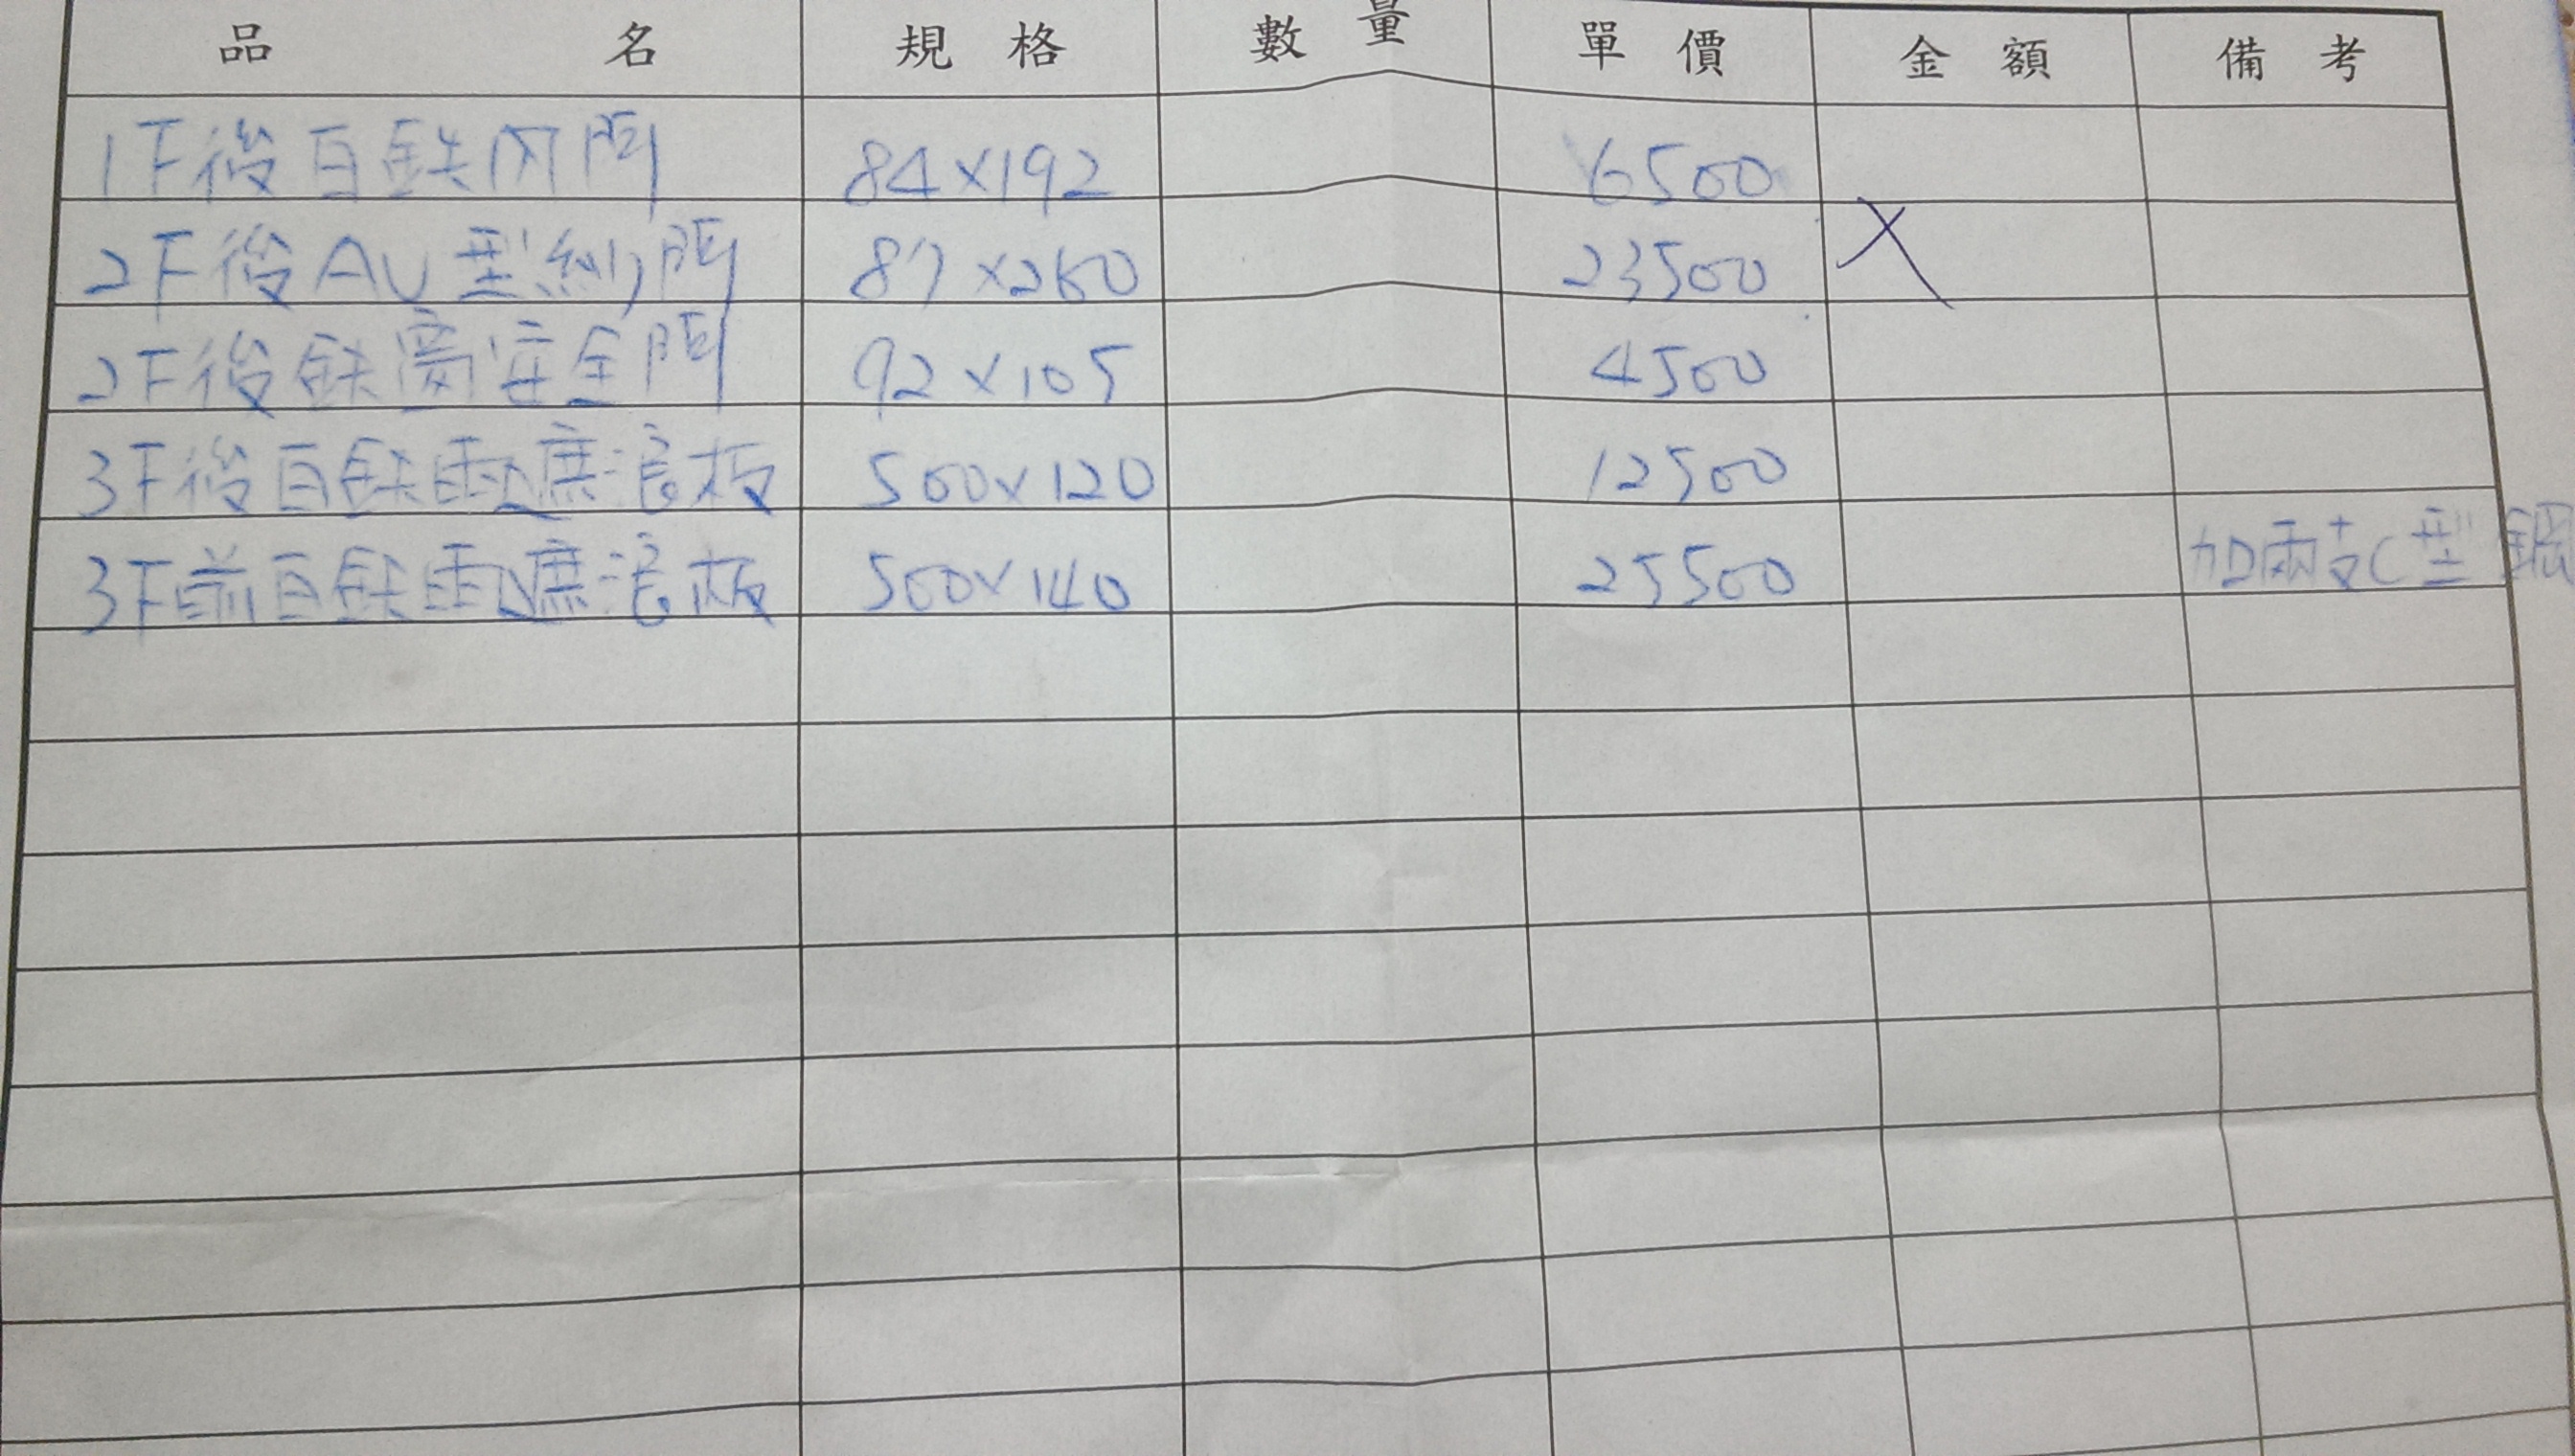 品名 規格 數量 單價 金額 備考
1F後白鉄內門 84×192 6500
2F後AU型紗門 87×260 23500 X
2F後鉄窗安全門 92×105 4500
3F後白鉄雨遮浪板 500×120 12500
3F前白鉄雨遮浪板 500×140 25500 加兩支C型鋼